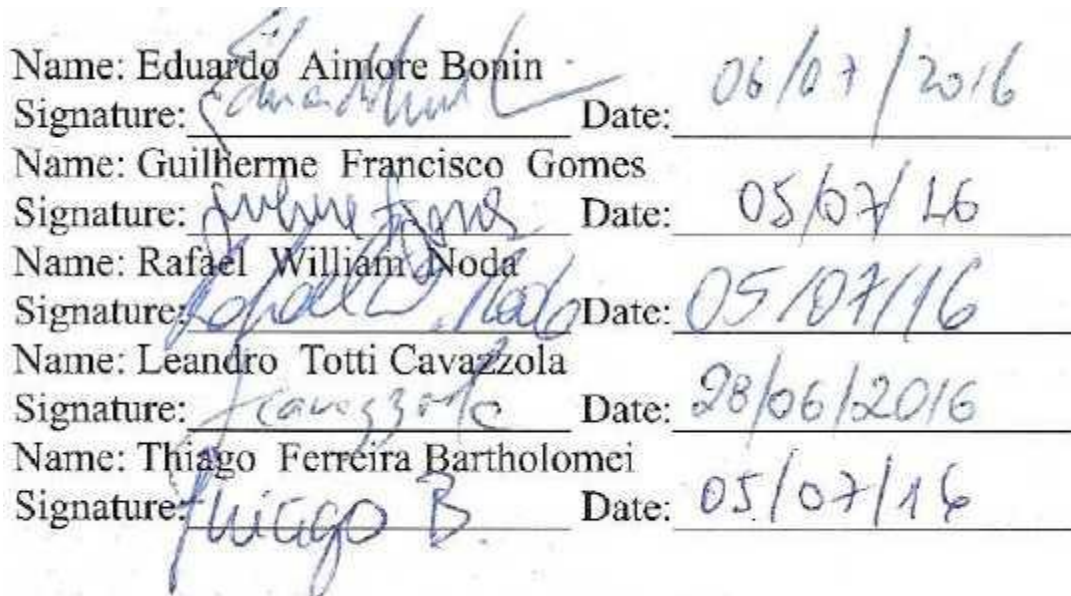 Name: Eduardo Aimore Bonin
Signature: Date: 06/07/2016
Name: Guilherme Francisco Gomes
Signature: Date: 05/07/16
Name: Rafael William Noda
Signature: Rafael W. Noda Date: 05/07/16
Name: Leandro Totti Cavazzola
Signature: Cavazzola Date: 28/06/2016
Name: Thiago Ferreira Bartholomei
Signature: Thiago B. Date: 05/07/16